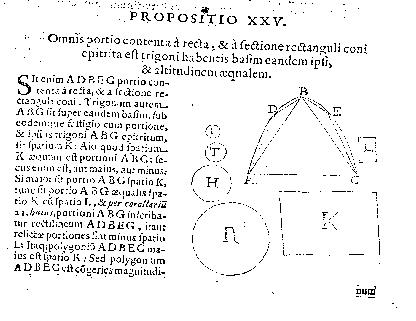 PROPOSITIO XXV.
Omnis portio contenta à recta, & à sectione rectanguli coni
epitrita est trigoni habentis basim eandem ipsi,
& altitudinem æqualem.
Sit enim ADBEG portio con-
tenta à recta, & à sectione re-
ctanguli coni. Trigonum autem
ABG sit super eandem basim, sub
eodemque fastigio cum portione,
& ipsius trigoni ABG epitritum,
sit spatium K: Aio quod spatium
K æquum est portioni ABG: se-
cus enim est, aut maius, aut minus.
Si maior sit portio ABG spatio K,
tunc sit portio ABG æqualis spa-
tio K cū spatio L, & per corollariū
huius, portioni ABG inscriba-
tur rectilineum ADBEG,
relictæ portiones sint minus spatio
L: Itaq; polygoniū ADBEG ma-
ius est spatio K: Sed polygonum
ADBEG est cōgeries magnitudi-
num
B
D
E
I
T
L
H
C
Π
K